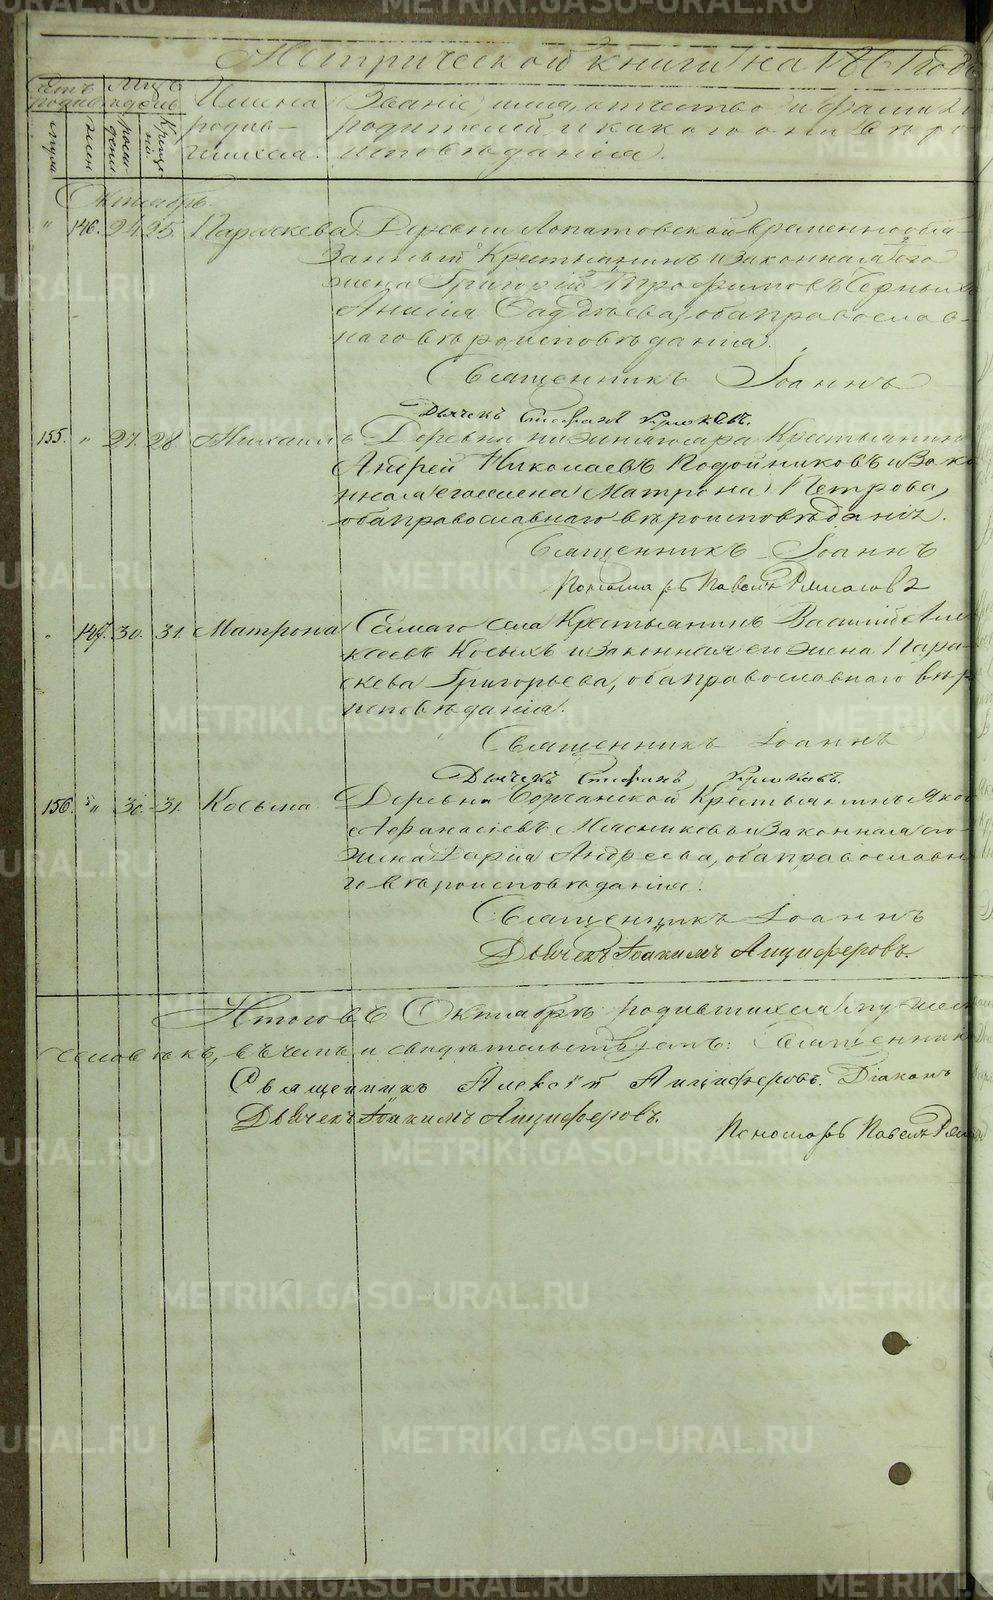 Метрической книги на 1861 годъ
Счетъ родив
Мѣсяцъ день
Имена
родив-
шихся.
Званіе, имя, отчество и фамилія
родителей, и какого они вѣро
исповѣданія.
мужа
женн
рожденія
Креще ній
Октябрь.
" 146. 24. 25. Параскева Деревни Лопатовской временнообя-
занный Крестьянинъ и законная его
жена Григорій Трофимовъ Черныхъ
Анисія Фаддѣева, оба православ-
наго вѣроисповѣданія.
Священникъ Іоаннъ
Дьячекъ Стефанъ
155. " 27. 28. Михаилъ Деревни Крестьянинъ
Андрей Николаевъ Подойниковъ и Зако
нная его жена Матрона Петрова,
оба православнаго вѣроисповѣданія.
Священникъ Іоаннъ
Пономарь Павелъ
" 147. 30. 31. Матрона Самаго села Крестьянинъ Василій Але
ксѣевъ Косыхъ и законная его жена Пара-
скева Григорьева, оба православнаго вѣро
исповѣданія.
Священникъ Іоаннъ
Дьячекъ Стефанъ
156. " 30. 31. Косьма Деревни Крестьянинъ Яков
Афанасіевъ Мясниковъ и Законная его
жена Дарія Андреева, оба православна
го вѣроисповѣданія.
Священникъ Іоаннъ
Дьячекъ Іоакимъ Анциферовъ.
Итого въ Октябрѣ родившихся
человѣкъ, въ чемъ и свидѣтельствуемъ: Священник
Священникъ Алексій Анциферовъ. Діаконъ
Дьячекъ Іоакимъ Анциферовъ.
Пономарь Павелъ
METRIKI.GASO-URAL.RU